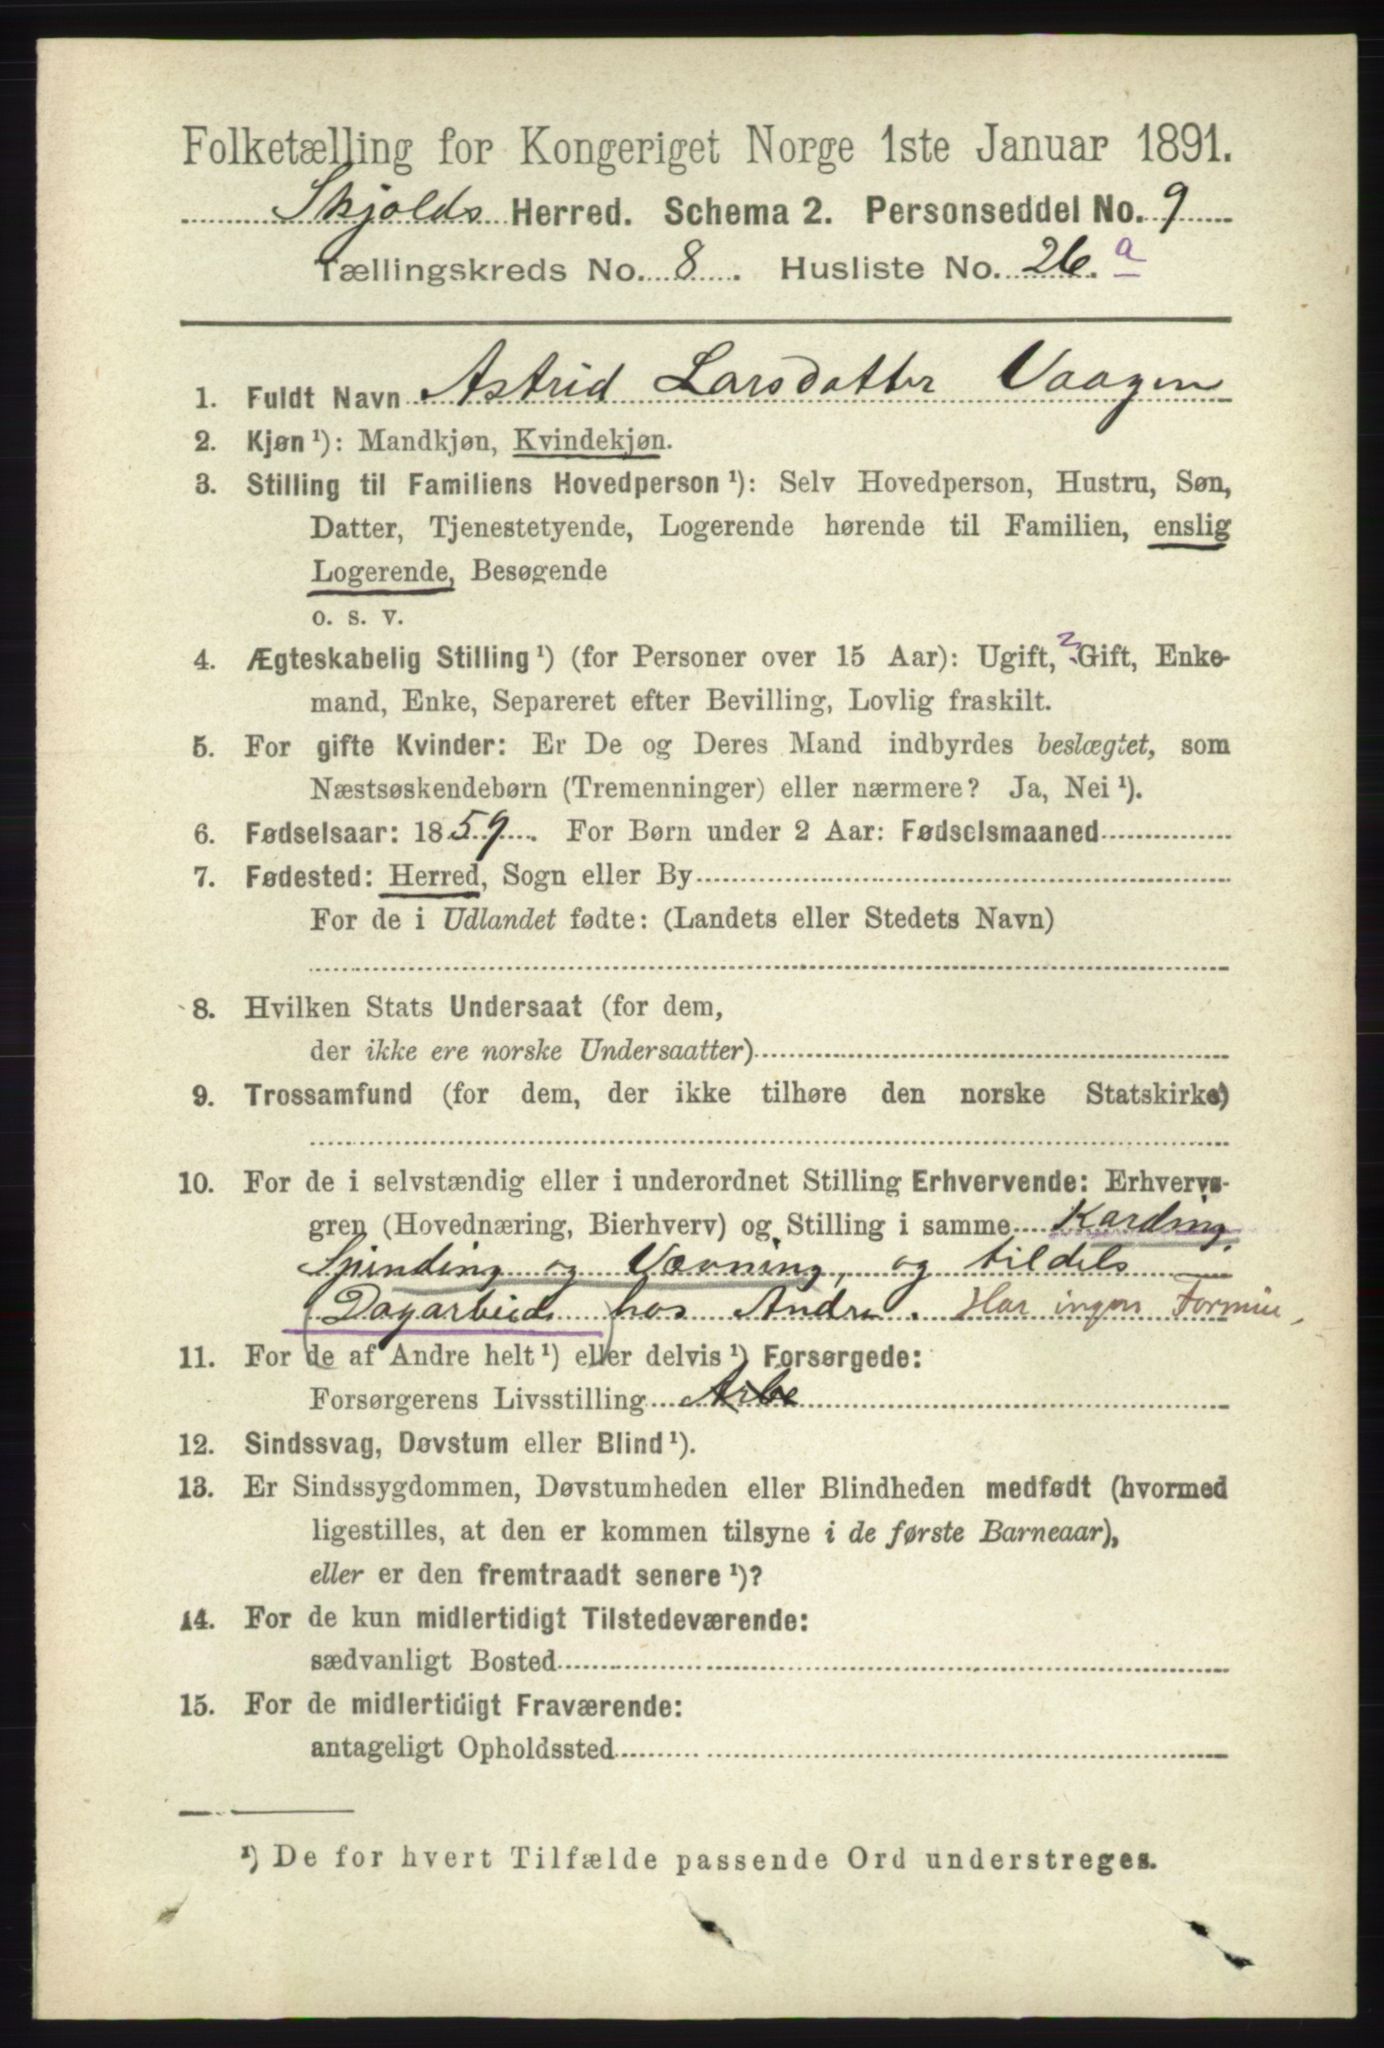 Folketælling for Kongeriget Norge 1ste Januar 1891.
Skjolds Herred. Schema 2. Personseddel No. 9
Tællingskreds No. 8. Husliste No. 26. a
1. Fuldt Navn Astrid Larsdatter Vaagen
2. Kjøn ¹): Mandkjøn, Kvindekjøn.
3. Stilling til Familiens Hovedperson ¹): Selv Hovedperson, Hustru, Søn,
Datter, Tjenestetyende, Logerende hørende til Familien, enslig
Logerende, Besøgende
o. s. v.
4. Ægteskabelig Stilling ¹) (for Personer over 15 Aar): Ugift, ? Gift, Enke-
mand, Enke, Separeret efter Bevilling, Lovlig fraskilt.
5. For gifte Kvinder: Er De og Deres Mand indbyrdes beslægtet, som
Næstsøskendebørn (Tremenninger) eller nærmere? Ja, Nei ¹).
6. Fødselsaar: 1859. For Børn under 2 Aar: Fødselsmaaned
7. Fødested: Herred, Sogn eller By
For de i Udlandet fødte: (Landets eller Stedets Navn)
8. Hvilken Stats Undersaat (for dem,
der ikke ere norske Undersaatter)
9. Trossamfund (for dem, der ikke tilhøre den norske Statskirke)
10. For de i selvstændig eller i underordnet Stilling Erhvervende: Erhvervs-
gren (Hovednæring, Bierhverv) og Stilling i samme Karding,
Spinding og Vævning, og tildels
(Dagarbeide) hos Andre. Har ingen Formue,
11. For de af Andre helt ¹) eller delvis ¹) Forsørgede:
Forsørgerens Livsstilling Arbe
12. Sindssvag, Døvstum eller Blind ¹).
13. Er Sindssygdommen, Døvstumheden eller Blindheden medfødt (hvormed
ligestilles, at den er kommen tilsyne i de første Barneaar),
eller er den fremtraadt senere ¹)?
14. For de kun midlertidigt Tilstedeværende:
sædvanligt Bosted
15. For de midlertidigt Fraværende:
antageligt Opholdssted
¹) De for hvert Tilfælde passende Ord understreges.